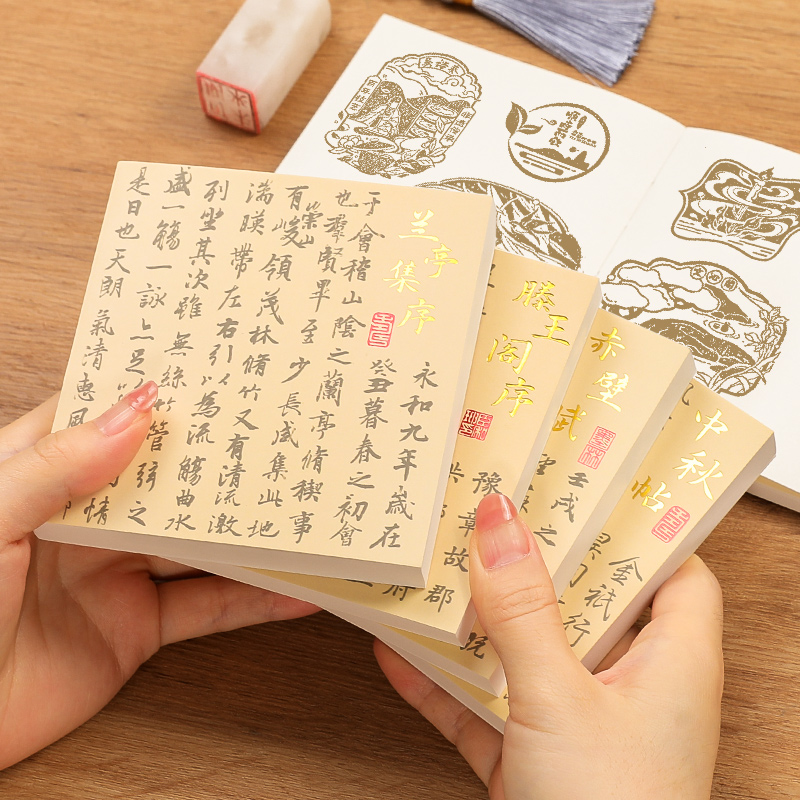 兰亭集序
永和九年歲在
癸丑暮春之初會
于會稽山陰之蘭亭脩稧事
也羣賢畢至少長咸集此地
有崇山峻領茂林脩竹又有清流激
湍暎帶左右引以為流觴曲水
列坐其次雖無絲竹管弦之
盛一觴一詠亦足以
情
是日也天朗氣清惠風
滕王阁序
豫章故郡
府
赤壁赋
壬戌
之
中秋帖
金祗
行